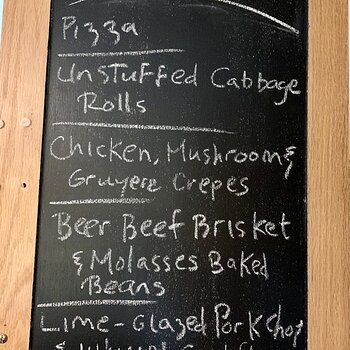 Pizza
Unstuffed Cabbage
Rolls
Chicken, Mushroom &
Gruyere Crepes
Beer Beef Brisket
& Molasses Baked
Beans
Lime-Glazed Pork Chop
&